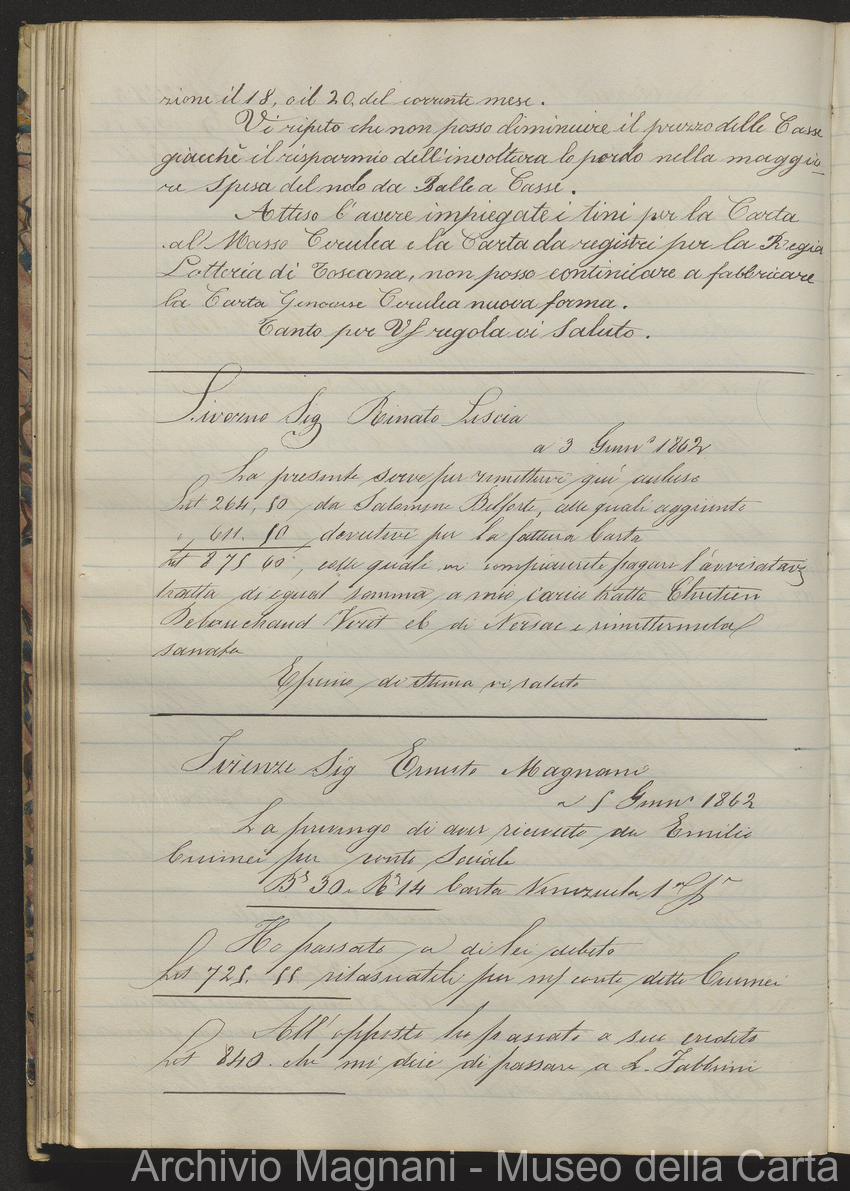 zione il 18, o il 20, del corrente mese.
Vi ripeto che non posso diminuire il prezzo delle Casse
giacchè il risparmio dell'involtura lo perdo nella maggio-
re spesa del nolo da Balle a Casse.
Atteso l'avere impiegate i tini per la Carta
al Masso Cerulea e la Carta da registri per la Regia
Lotteria di Toscana, non posso continuare a fabbricare
la Carta Genovese Cerulea nuova forma.
Tanto per Vs regola vi saluto.
Livorno Sig Renato Liscia
a 3 Genno 1862
La presente serve per rimettervi quì accluse
Lit 264,10 da Salomone Belforte, alle quali aggiunte
" 611.50 dovutevi per la fattura Carta
Lit 875 60, colle quali vi compiacerete pagare l'avvisatavi
tratta di egual somma a mio carico tratta Chretien
Debouchaud Verit el di Nersac e rimettermela
sanata
E pieno di stima vi saluto
Firenze Sig Ernesto Magnani
a 5 Genno 1862
La prevengo di aver ricevuto da Emilio
Cuimei per conto Sociale
Be 30 Re 14 Carta Venezuela 1a
Ho passato a di lei debito
Lit 725.55 rilasciateli per m/ conto dette Cuimei
All'opposto ho passato a suo credito
Lit 840. che mi dice di passare a L. Fabbrini
Archivio Magnani - Museo della Carta